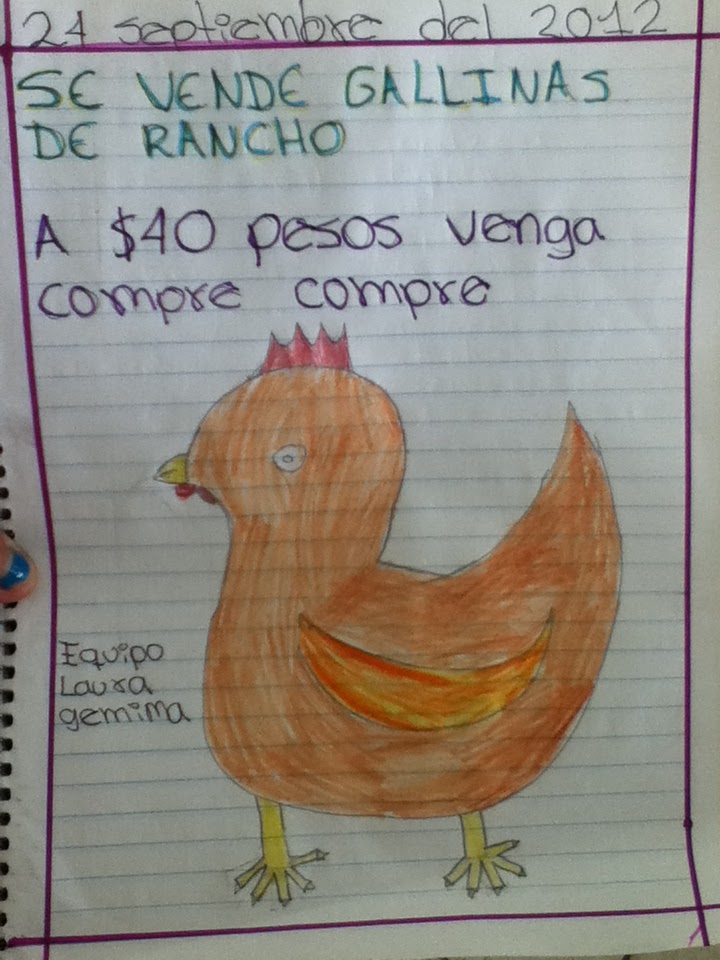 24 septiembre del 2012
SE VENDE GALLINAS
DE RANCHO
A $40 pesos venga
compre compre
Equipo
Laura
gemima